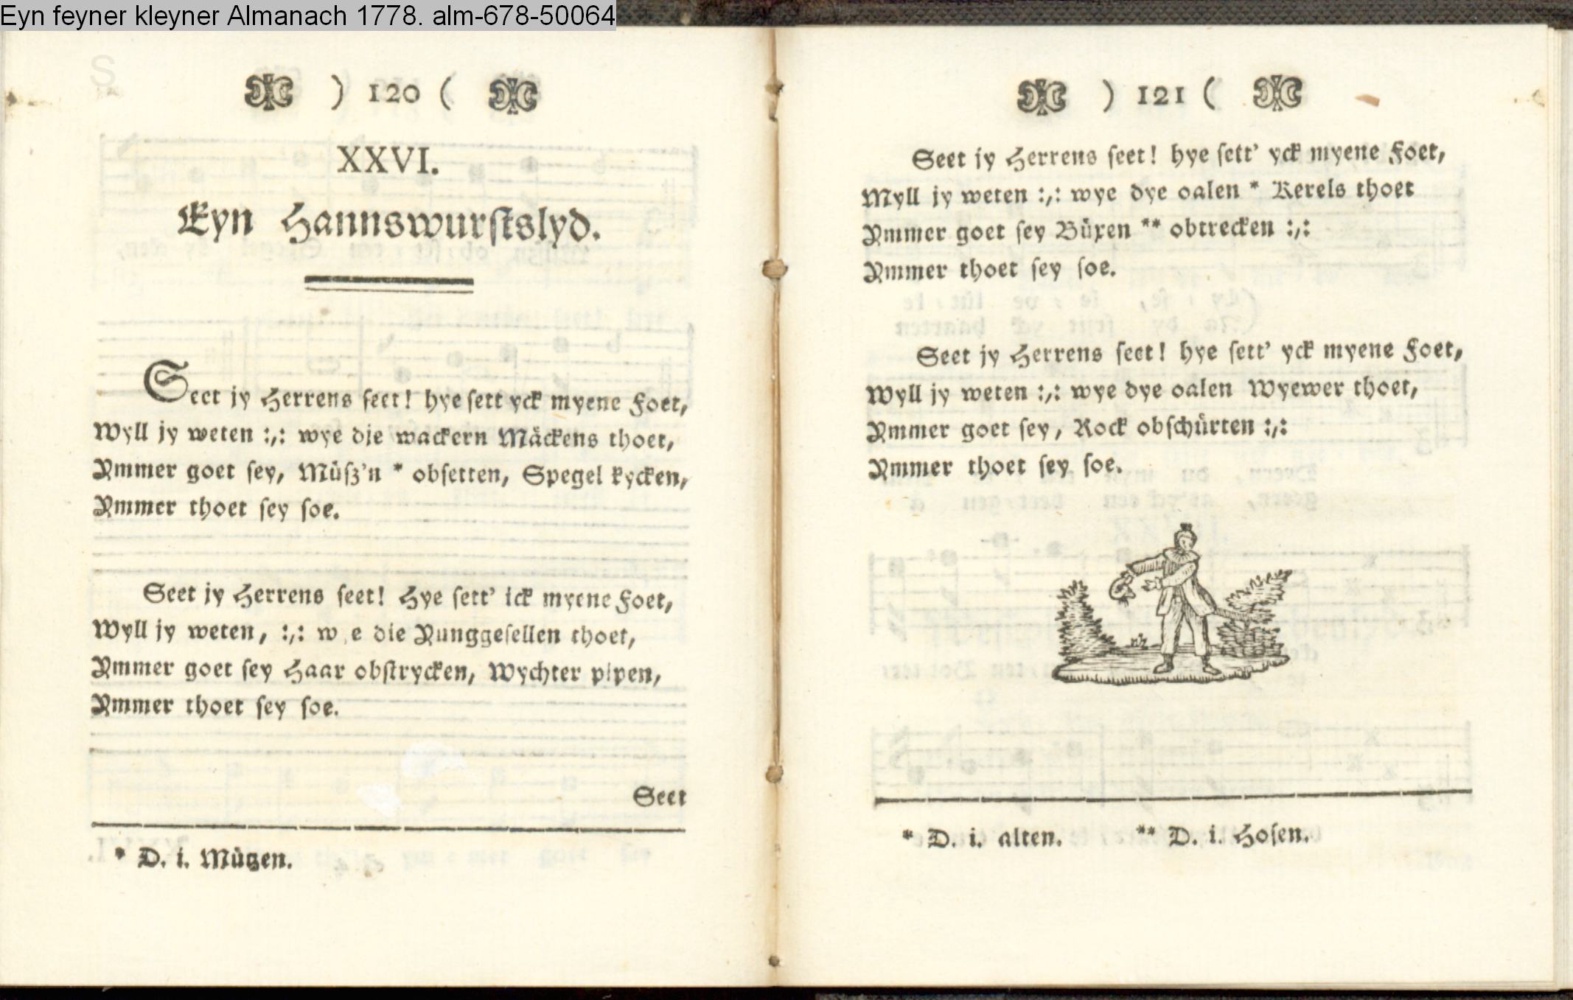 Eyn feyner kleyner Almanach 1778. alm-678-50064
) 120 (
XXVI.
Eyn Hannswurstslyd.
Seet jy Herrens seet! hye sett yck myene Foet,
Wyll jy weten :,: wye die wackern Mäckens thoet,
Ymmer goet sey, Müsz'n * obsetten, Spegel kycken,
Ymmer thoet sey soe.
Seet jy Herrens seet! Hye sett' ick myene Foet,
Wyll jy weten, :,: w e die Yunggesellen thoet,
Ymmer goet sey Haar obstrycken, Wychter pipen,
Ymmer thoet sey soe.
Seet
* D. i. Mützen.
) 121 (
Seet jy Herrens seet! hye sett' yck myene Foet,
Wyll jy weten :,: wye dye oalen * Kerels thoet
Ymmer goet sey Büxen ** obtrecken :,:
Ymmer thoet sey soe.
Seet jy Herrens seet! hye sett' yck myene Foet,
Wyll jy weten :,: wye dye oalen Wyewer thoet,
Ymmer goet sey, Rock obschürten :,:
Ymmer thoet sey soe.
* D. i. alten. ** D. i. Hosen.